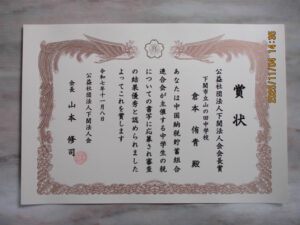 賞状
公益社団法人下関法人会会長賞
下関市立山の田中学校
倉本侑貴 殿
あなたは中国納税貯蓄組合
連合会が主催する中学生の税
についての書写に応募され審査
の結果優秀と認められました
よってこれを賞します
令和七年十一月八日
公益社団法人下関法人会
会長 山本修司
2025/11/04 14:36